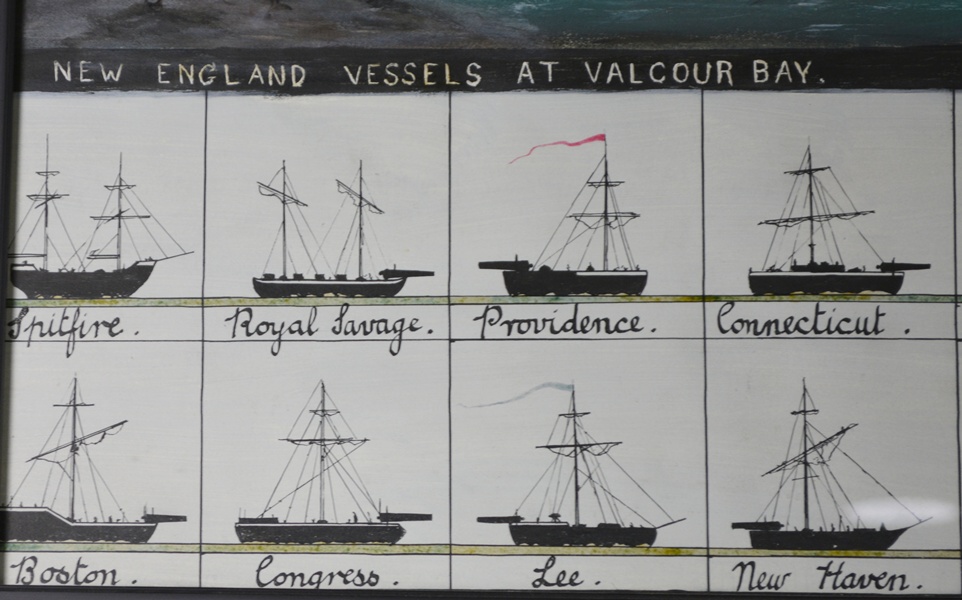 NEW ENGLAND VESSELS AT VALCOUR BAY.
Spitfire. Royal Savage. Providence. Connecticut.
Boston. Congress. Lee. New Haven.